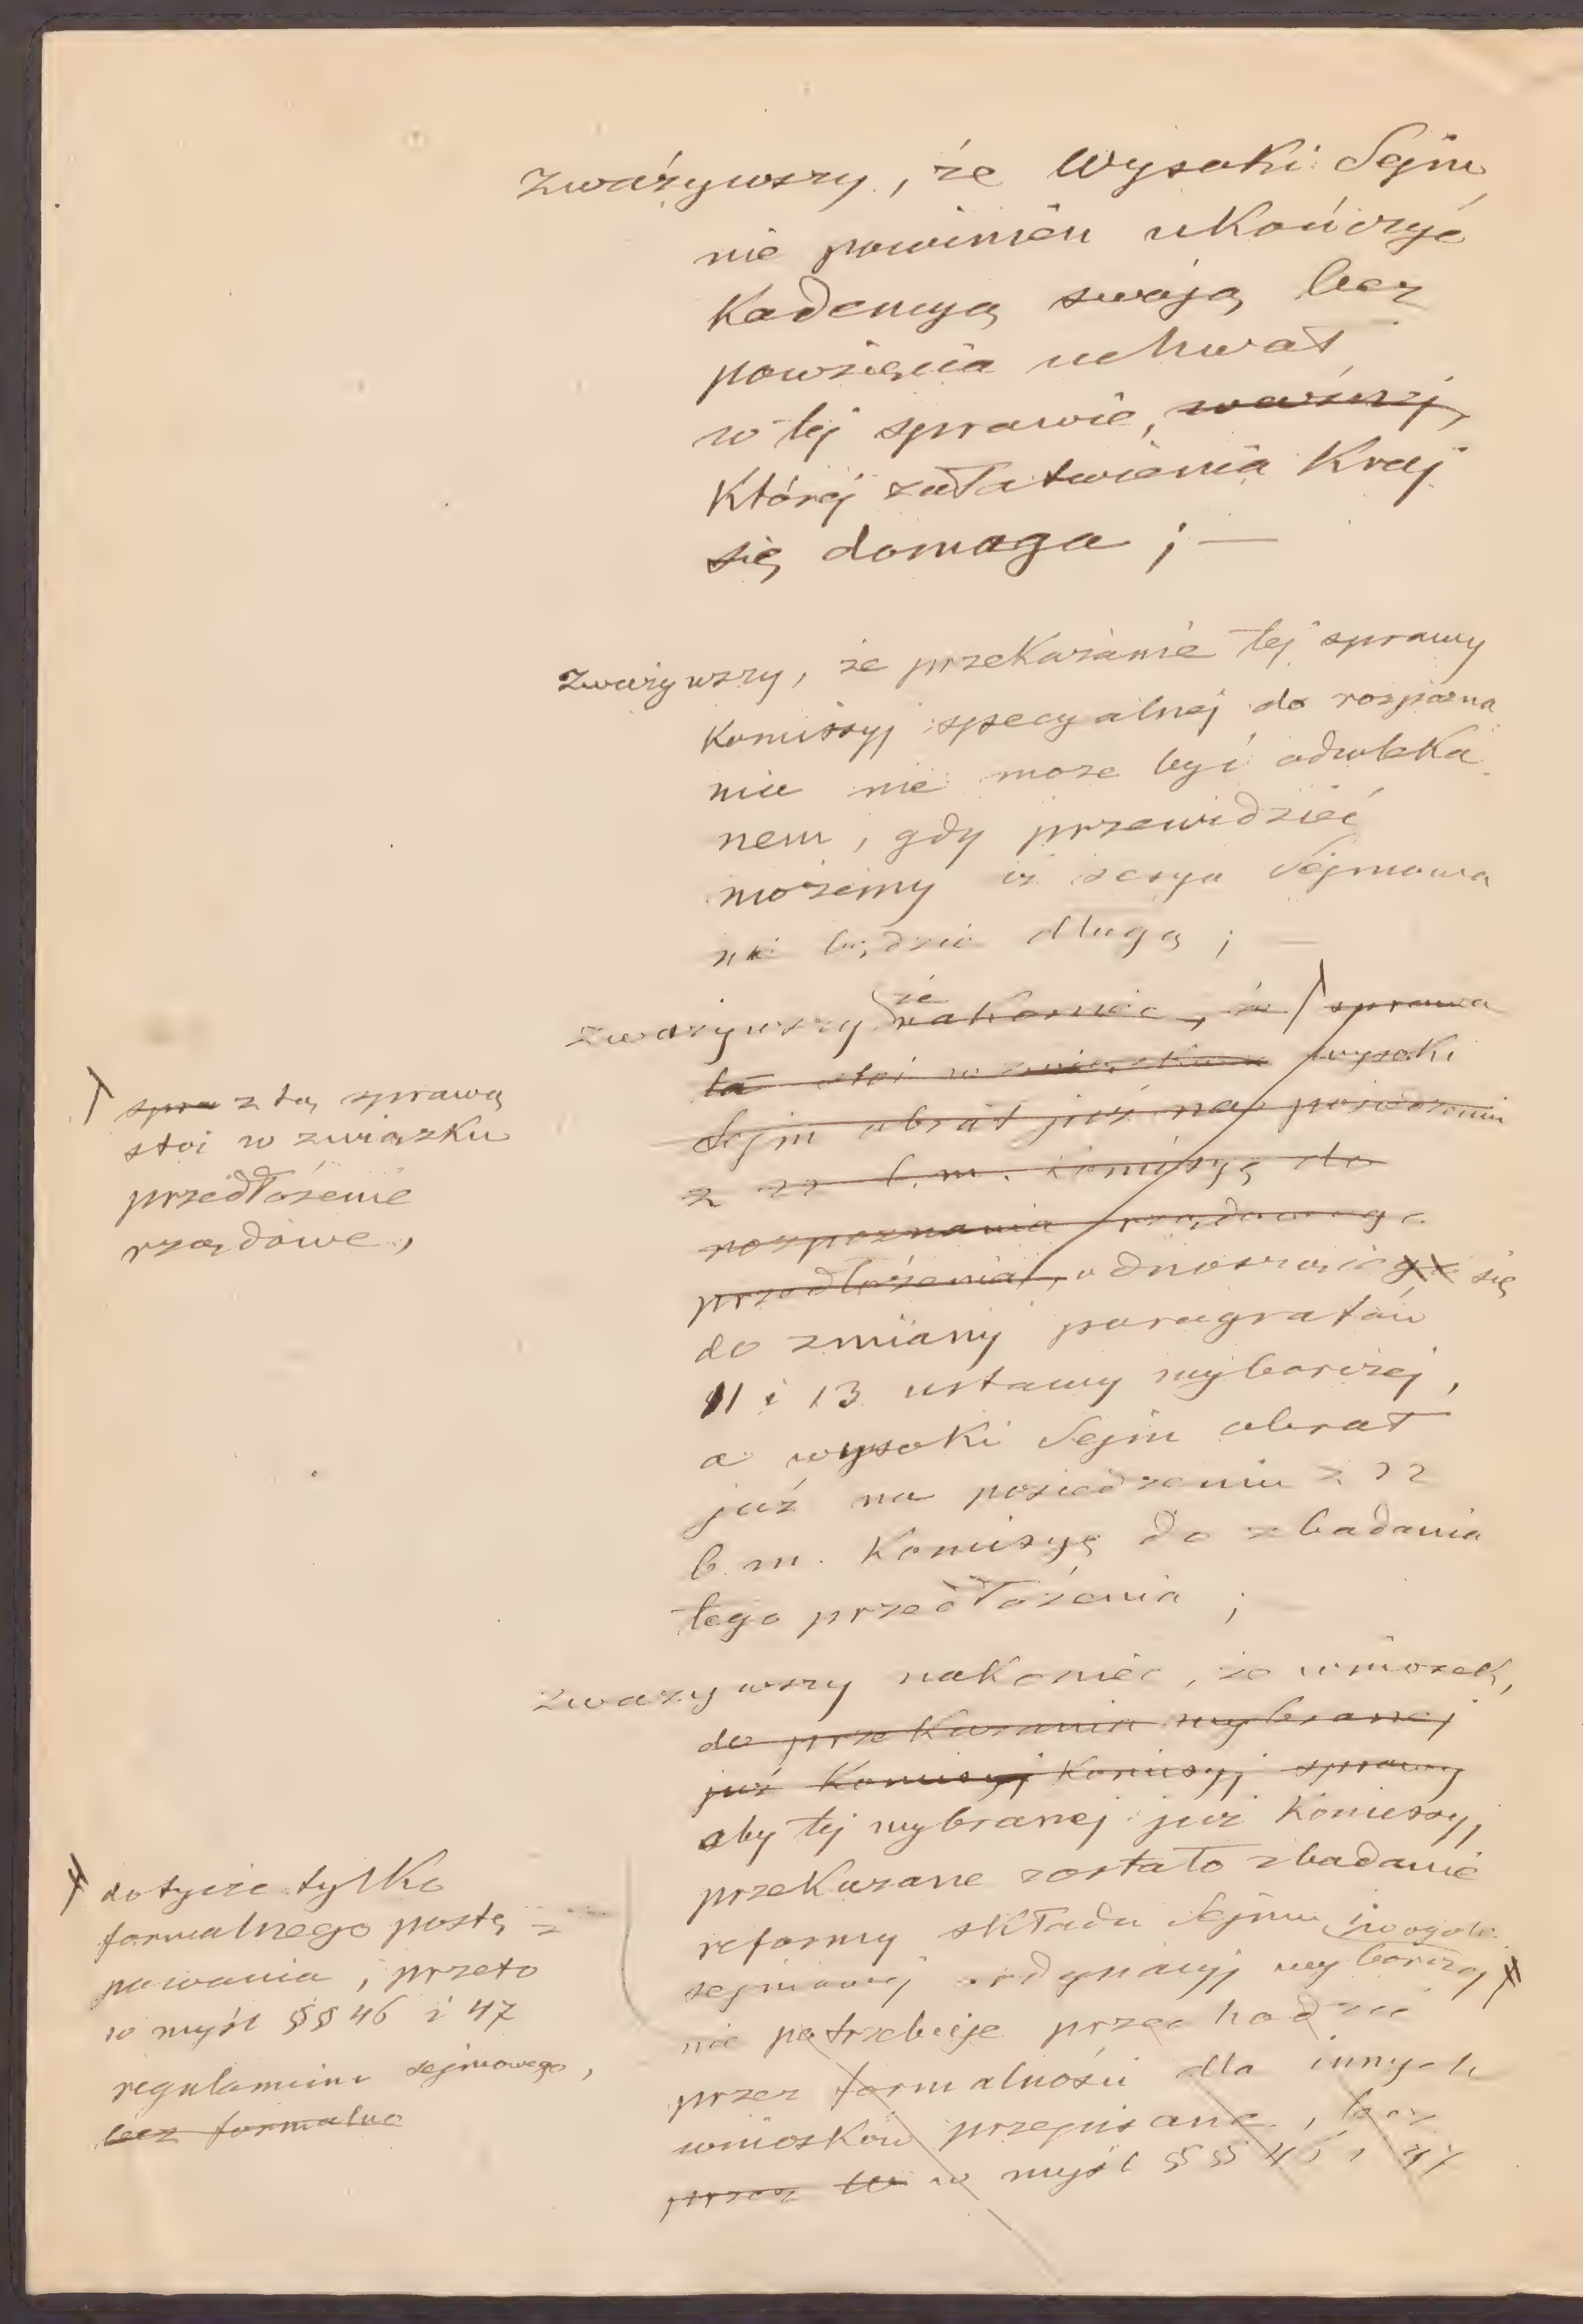 Zważywszy, że Wysoki Sejm
nie powinien ukończyć
Kadencyą swoją bez
powzięcia uchwał
w tej sprawie, ważnej,
Której załatwienia Kraj
się domaga ; —
Zważywszy, że przeKazanie tej sprawy
Komissyj specyalnej do rozpozna
nia nie może być odwleKa
nem, gdy przewidzieć
możemy iż sesya Sejmowa
nie będzie długą ; —
zważywszy że naKoniec, że sprawa
ta stoi w związku wysoki
Sejm obrał już na posiedzeniu
z 22 b. m. Komisyę do
rozpoznania rządowego
przedłożenia, odnoszącego się
do zmiany paragrafów
11 i 13 ustawy wyborczej,
a wysoKi Sejm obrał
już na posiedzeniu z 22
b. m. Komisyę do zbadania
tego przedłożenia ;
spra z tą sprawą
stoi w związKu
przedłożenie
rządowe,
zważywszy naKoniec, że wniosek,
do przeKazania wybranej
już Komisyj Komisyj sprawy
aby tej wybranej już Komissyj
przeKazane zostało zbadanie
reformy sKładu Sejmu i w ogóle
sejmowej ordynacyj wyborczej
nie potrzebuje przechodzić
przez formalności dla innych
wniosKów przepisane, lecz
przez w w myśl §§ 46 i 47
dotycze tylKo
formalnego postę
powania, i przeto
w myśl §§ 46 i 47
regulaminu sejmowego,
bez formalno